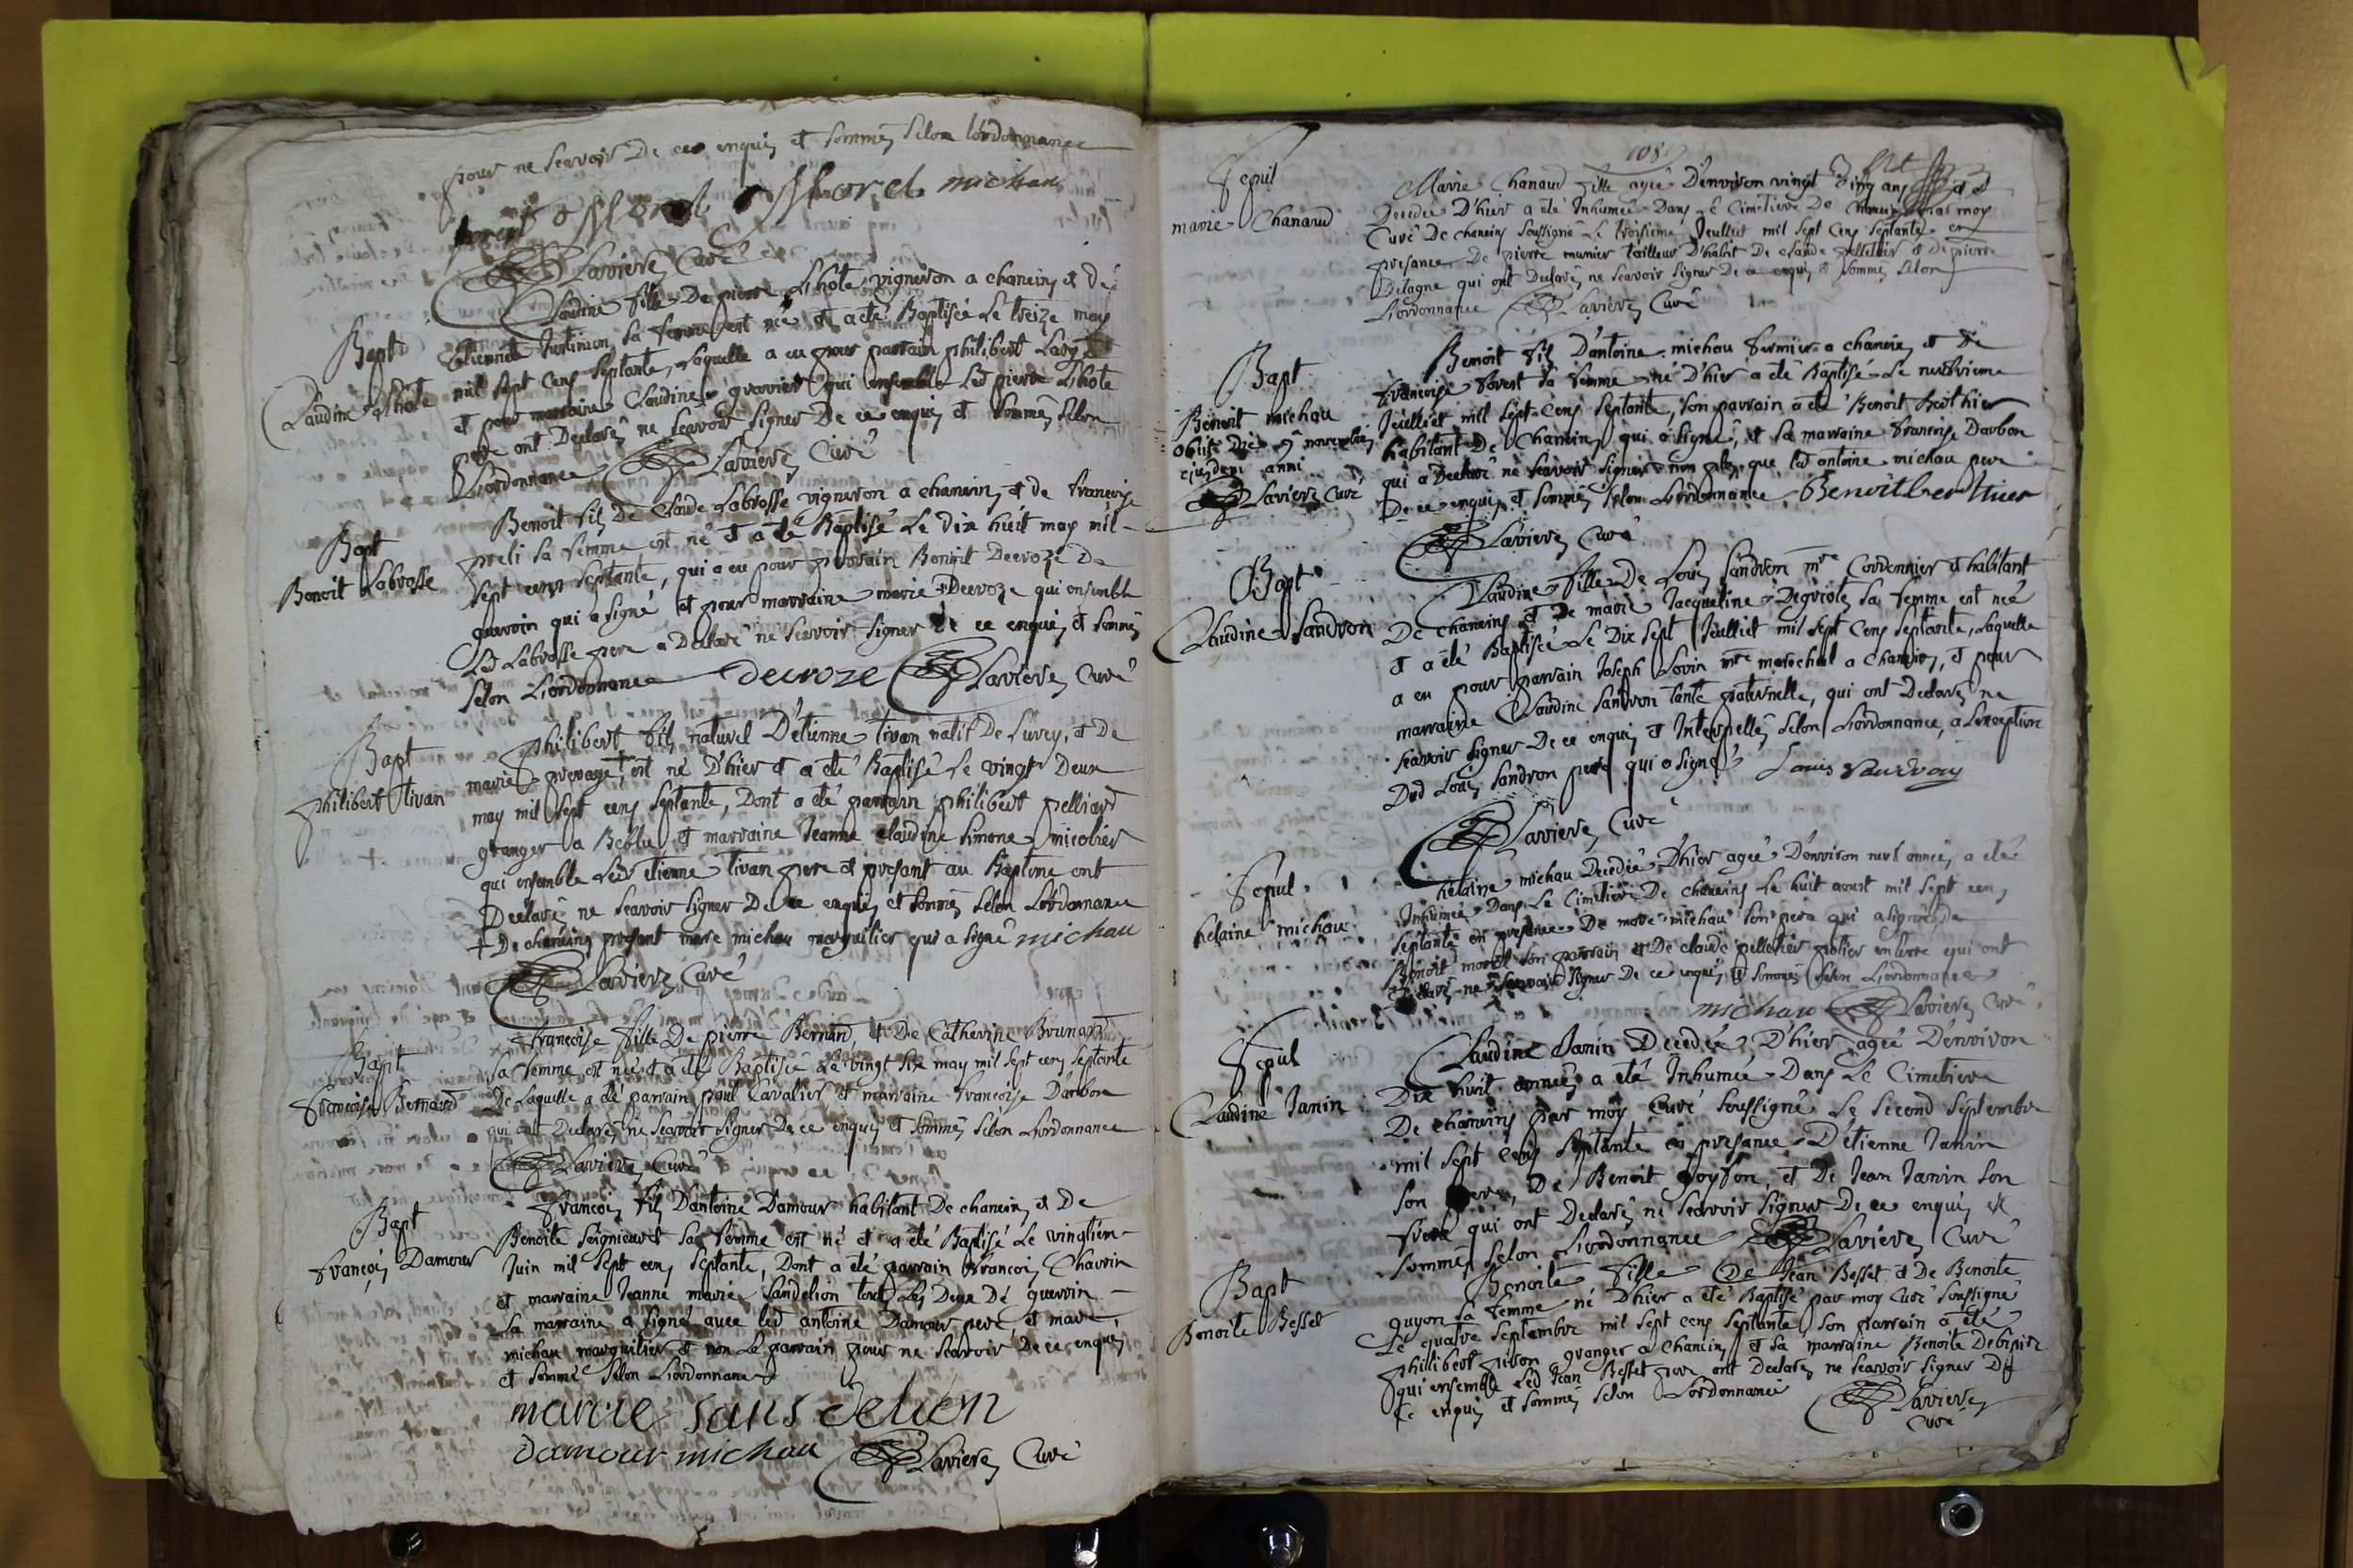 pour ne scavoir De ce enquis et sommés selon l'ordonnance
morel michau
Lavieres Curé
Bapt
Claudine Lhote
Claudine fille De pierre Lhote vigneron a chaneins et de
Etiennete sa femme est née et a été Baptisée Le treize may
mil sept cens septante, Laquelle a eu pour parrain philibert
et pour marraine Claudine gravier qui ensemble Led pierre Lhote
pere ont Declarés ne scavoir signer De ce enquis et sommés selon
L'ordonnance Lavieres Curé
Bapt
Benoit Labrosse
Benoit fils De Claude Labrosse vigneron a chaneins et de francoise
preli sa femme est né et a été Baptisé Le dix huit may mil
sept cens septante, qui a eu pour parrain Benoit Decroze De
guerrein qui a signé et pour marraine marie Decroze qui ensemble
Led Labrosse pere a Declaré ne scavoir signer De ce enquis et sommés
selon L'ordonnance decroze Lavieres Curé
Bapt
philibert tivan
philibert fils naturel D'étienne tivan natif De Lurey, et De
marie est né D'hier et a été Baptisé Le vingt Deux
may mil sept cens septante, Dont a été parrain philibert pelliard
granger a et marraine Jeanne claudine simone micolier
qui ensemble Led etienne tivan pere et présant au Baptême ont
Declaré ne scavoir signer De ce enquis et sommés selon L'ordonnance
+ De chaneins présant marc michau marguilier qui a signé michau
Lavieres Curé
Bapt
francoise Bernard
francoise fille De pierre Bernard, et De Catherine Brunard
sa femme est née et a été Baptisée Le vingt six may mil sept cens septante
De Laquelle a été parrain paul Cavalier et marraine francoise Darbon
qui ont Declarés ne scavoir signer De ce enquis et sommés selon L'ordonnance
Lavieres Curé
Bapt
françois Damour
françois fils D'antoine Damour habitant De chaneins et De
Benoite seignieuret sa femme est né et a été Baptisé Le vingtiem
Juin mil sept cens septante, Dont a été parrain françois Chavrin
et marraine Jeanne marie sandelion tous Les Deux De guerrin
La marraine a signé avec led antoine Damour pere et marc
michau marguilier et non Le parrain pour ne scavoir De ce enquis
et sommé selon L'ordonnance
marie sans delien
damour michau Lavieres Curé
108
Sepul
marie Chanaud
Marie Chanaud fille agée D'environ vingt cinq ans
Decedée D'hier a été Inhumée Dans Le Cimetiere De Chaneins par moy
Curé De chaneins soussigné Le troisieme Jeuillet mil sept cens septante en
presance De pierre munier tailleur D'habit De claude pelletier et de pierre
Betagne qui ont Declarés ne scavoir signer De ce enquis et sommés selon
L'ordonnance Lavieres Curé
Bapt
Benoit michau
obiit Die 9 novembris
ejusdem anni
Lavieres Curé
Benoit fils D'antoine michau fermier a chaneins et De
francoise forest sa femme né D'hier a été Baptisé Le neufvieme
Jeuillet mil sept cens septante, son parrain a été Benoit Berthier
habitant De Chaneins qui a signé, et sa marraine francoise Darbon
qui a Declaré ne scavoir signer non plus que led antoine michau pere
De ce enquis et sommés selon L'ordonnance Benoit berthier
Lavieres Curé
Bapt
Claudine Sandron
Claudine fille De Louis Sandron mre Cordonnier et habitant
De chaneins et De marie Jacqueline Degriole sa femme est née
et a été Baptisée Le Dix sept Jeuillet mil sept cens septante, Laquelle
a eu pour parrain Joseph Lovin mre marechal a Chaneins, et pour
marraine Claudine Sandron tante paternelle, qui ont Declarés ne
scavoir signer De ce enquis et Interpellés selon L'ordonnance, a L'exception
Dud Louis Sandron pere qui a signé Louis
Lavieres Curé
Sepul
helaine michau
helaine michau Decedée D'hier agée D'environ neuf années a été
Inhumée Dans Le Cimetiere De chaneins Le huit aoust mil sept cens
septante en presance De marc michau son pere qui a signé, De
Benoit morel son parrain et De claude pelletier potier en terre qui ont
Declaré ne scavoir signer De ce enquis et sommés selon L'ordonnance
michau Lavieres Curé
Sepul
Claudine Janin
Claudine Janin Decedée D'hier agée D'environ
Dix huit années a été Inhumée Dans Le Cimetiere
De chaneins par moy Curé soussigné Le second septembre
mil sept cens septante en presance D'étienne Janin
son pere, De Benoit poyfon, et De Jean Janin son
frere qui ont Declarés ne scavoir signer De ce enquis et
sommés selon L'ordonnance Lavieres Curé
Bapt
Benoite Besset
Benoite fille De Jean Besset et De Benoite
guyon sa femme né D'hier a été Baptisé par moy Curé soussigné
Le quatre septembre mil sept cens septante son parrain a été
philibert piron granger a chaneins et sa marraine Benoite
qui ensemble Led Jean Besset pere ont Declarés ne scavoir signer De
ce enquis et sommés selon L'ordonnance Lavieres
Curé